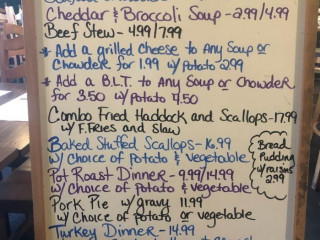 Cheddar & Broccoli Soup - 2.99/4.99
Beef Stew - 4.99/7.99
* Add a grilled Cheese to Any Soup or
Chowder for 1.99 w/ Potato 2.99
* Add a B.L.T. to Any Soup or Chowder
for 3.50 w/ Potato 4.50
Combo Fried Haddock and Scallops - 17.99
w/ F.Fries and Slaw
Baked Stuffed Scallops - 16.99
w/ Choice of potato & vegetable
Pot Roast Dinner - 9.99/14.99
w/ Choice of potato & vegetable
Pork Pie w/ gravy 11.99
w/ Choice of potato or vegetable
Turkey Dinner - 14.99
Bread
Pudding
w/ raisins
2.99